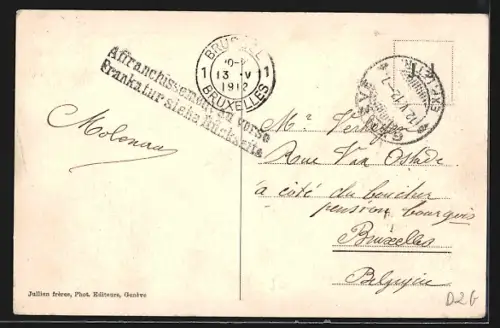 Affranchissement au verso
Frankatur siehe Rückseite
BRUSSEL
1 1
13 V
1912
BRUXELLES
EXP. LETTR.
12.V.12.-7.
Mr.
Rue Van Ostade
à côté du boucher
pension bourgeois
Bruxelles
Belgique
Jullien frères, Phot. Editeurs, Genève
D26